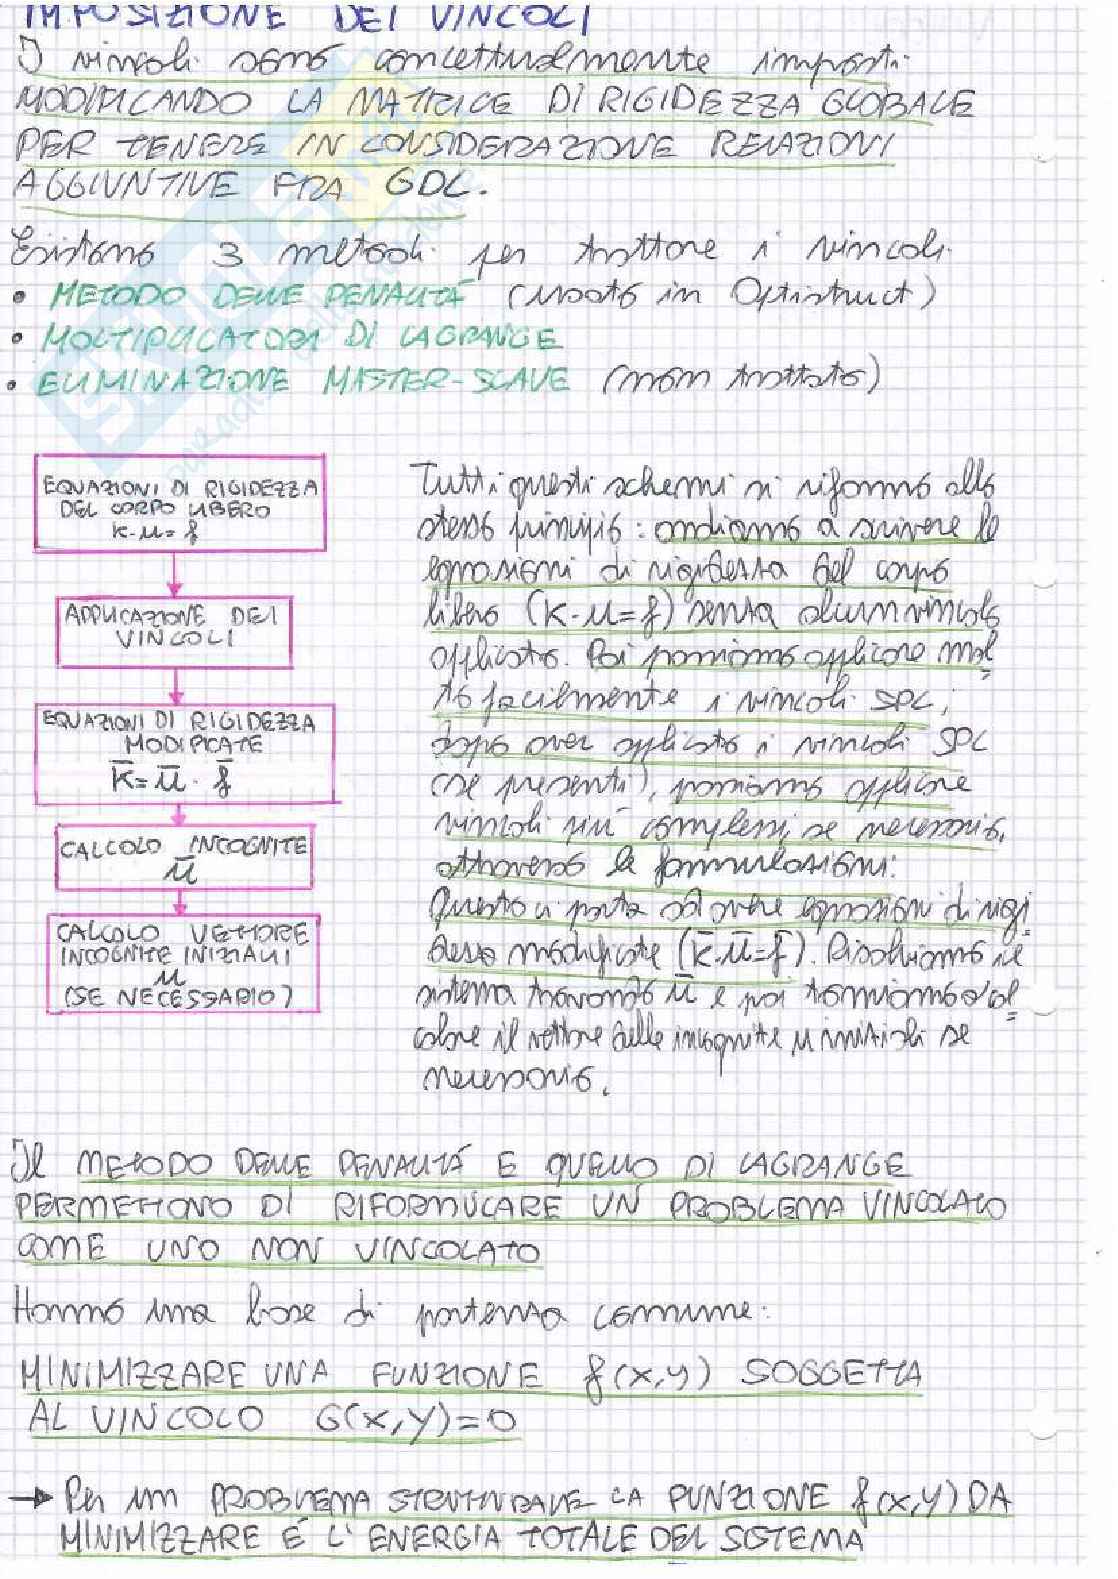 IMPOSIZIONE DEI VINCOLI
I vincoli sono concettualmente imposti
MODIFICANDO LA MATRICE DI RIGIDEZZA GLOBALE
PER TENERE IN CONSIDERAZIONE RELAZIONI
AGGIUNTIVE FRA GDL.
Esistono 3 metodi per trattare i vincoli
• METODO DELLE PENALITÁ (usato in Optistruct)
• MOLTIPLICATORI DI LAGRANGE
• ELIMINAZIONE MASTER-SLAVE (non trattato)
EQUAZIONI DI RIGIDEZZA
DEL CORPO LIBERO
K·u=f
APPLICAZIONE DEI
VINCOLI
EQUAZIONI DI RIGIDEZZA
MODIFICATE
K̄=ū·f̄
CALCOLO INCOGNITE
ū
CALCOLO VETTORE
INCOGNITE INIZIALI
u
(SE NECESSARIO)
Tutti questi schemi si rifanno allo
stesso principio: andiamo a scrivere le
equazioni di rigidezza del corpo
libero (K·u=f) senza alcun vincolo
applicato. Poi possiamo applicare mol
to facilmente i vincoli SPC;
dopo aver applicato i vincoli SPC
(se presenti), possiamo applicare
vincoli più complessi, se necessario,
attraverso le formulazioni:
Questo ci porta ad avere equazioni di rigi
dezza modificate (K̄·ū=f̄). Risolviamo il
sistema trovando ū e poi torniamo a cal
colare il vettore delle incognite u iniziali se
necessario.
Il METODO DELLE PENALITÁ E QUELLO DI LAGRANGE
PERMETTONO DI RIFORMULARE UN PROBLEMA VINCOLATO
COME UNO NON VINCOLATO
Hanno una base di partenza comune:
MINIMIZZARE UNA FUNZIONE f(x,y) SOGGETTA
AL VINCOLO G(x,y)=0
→ Per un PROBLEMA STRUTTURALE LA FUNZIONE f(x,y) DA
MINIMIZZARE É L'ENERGIA TOTALE DEL SISTEMA